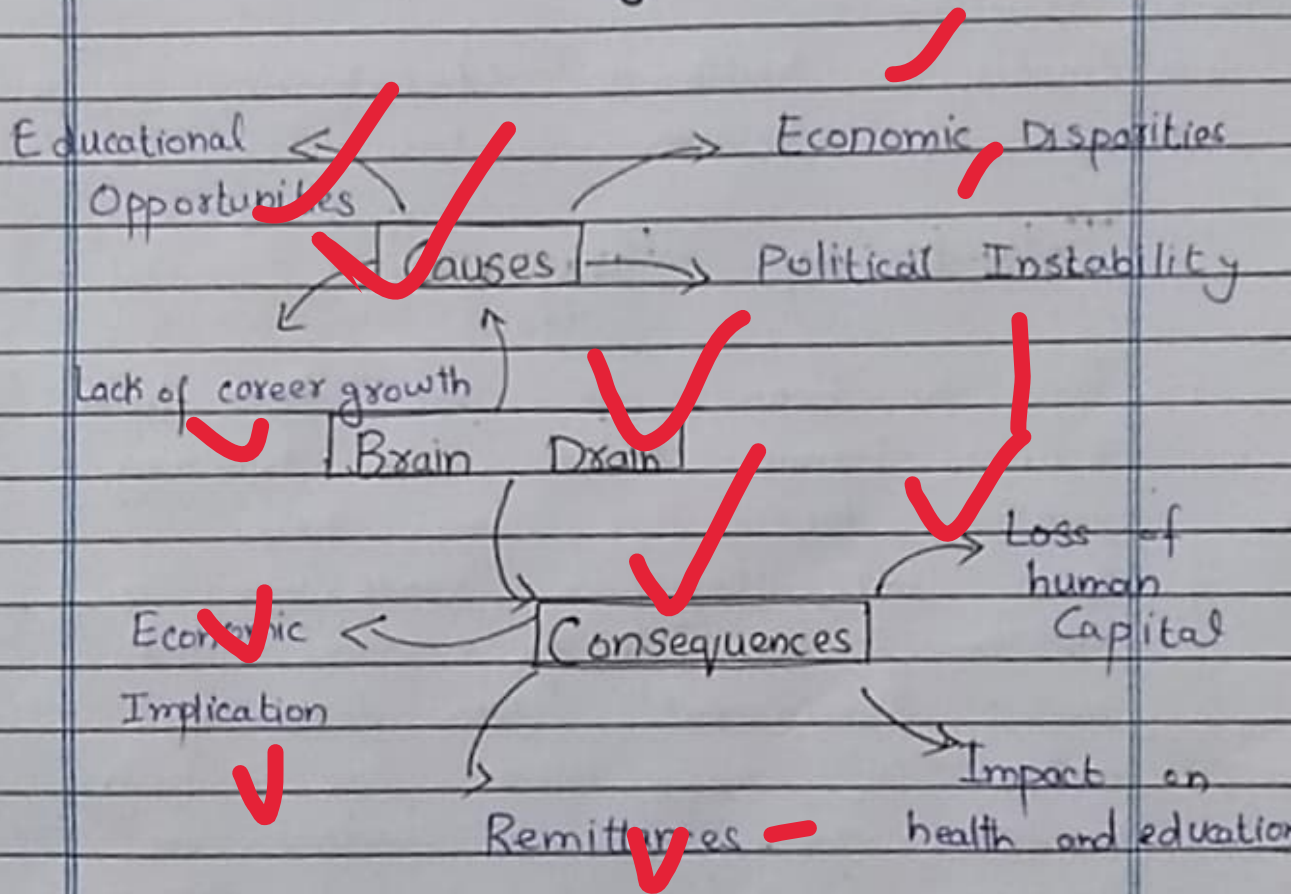 Educational
Opportunities
Economic Disparities
Causes
Political Instability
Lack of career growth
Brain Drain
Loss of
human
Capital
Consequences
Economic
Implication
Impact on
health and education
Remittances